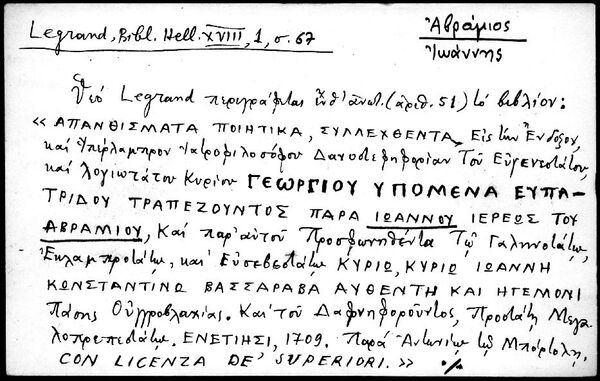 Legrand, Bibl. Hell. XVIII, 1, σ. 67
Ἀβράμιος
Ἰωάννης
Ὑπὸ Legrand περιγράφεται ἐνθ' ἀνωτ. (ἀριθ. 51) τὸ βιβλίον:
« ΑΠΑΝΘΙΣΜΑΤΑ ΠΟΙΗΤΙΚΑ, ΣΥΛΛΕΧΘΕΝΤΑ Εἰς τὴν Ἔνδοξον,
καὶ Ὑπέρλαμπρον Ἰατροφιλοσόφου Δαφνοστεφηφορίαν Τοῦ Εὐγενεστάτου,
καὶ λογιωτάτου Κυρίου ΓΕΩΡΓΙΟΥ ΥΠΟΜΕΝΑ ΕΥΠΑ-
ΤΡΙΔΟΥ ΤΡΑΠΕΖΟΥΝΤΟΣ ΠΑΡΑ ΙΩΑΝΝΟΥ ΙΕΡΕΩΣ ΤΟΥ
ΑΒΡΑΜΙΟΥ, Καὶ παρ' αὐτοῦ Προσφωνηθέντα Τῷ Γαληνοτάτῳ,
Ἐκλαμπροτάτῳ, καὶ Εὐσεβεστάτῳ ΚΥΡΙῼ, ΚΥΡΙῼ ΙΩΑΝΝΗ
ΚΩΝΣΤΑΝΤΙΝῼ ΒΑΣΣΑΡΑΒΑ ΑΥΘΕΝΤΗ ΚΑΙ ΗΓΕΜΟΝΙ
Πάσης Οὑγγροβλαχίας. Καὶ τοῦ Δαφνηφοροῦντος, Προστάτῃ Μεγα
λοπρεπεστάτῳ. ΕΝΕΤΙΗΣΙ, 1709. Παρὰ Ἀντωνίῳ τῷ Μπόρτολῃ,
CON LICENZA DE' SUPERIORI. » ./.